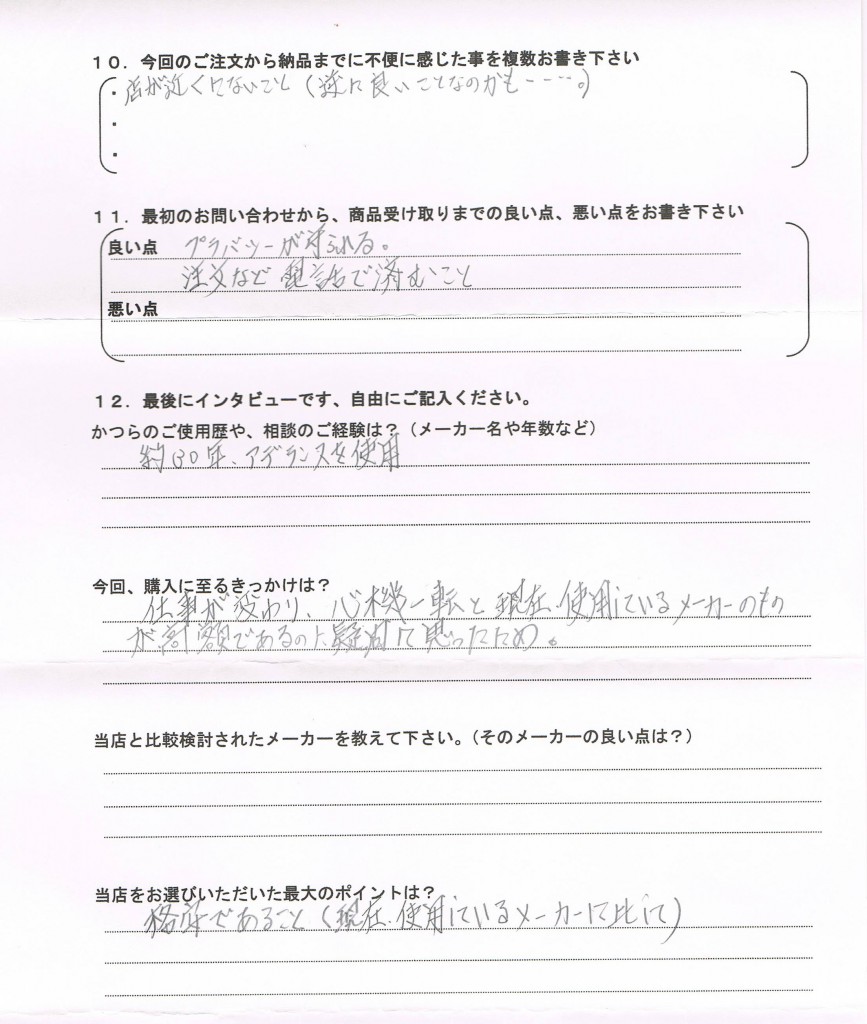 10．今回のご注文から納品までに不便に感じた事を複数お書き下さい
・店が近くにないこと（逆に良いことなのかも----。）
・
・
11．最初のお問い合わせから、商品受け取りまでの良い点、悪い点をお書き下さい
良い点 プラバシーが守られる。
注文など電話で済むこと
悪い点
12．最後にインタビューです、自由にご記入ください。
かつらのご使用歴や、相談のご経験は？（メーカー名や年数など）
約30年、アデランスを使用
今回、購入に至るきっかけは？
仕事が変わり、心機一転と現在、使用しているメーカーのもの
が高額であるのに疑問に思ったため。
当店と比較検討されたメーカーを教えて下さい。（そのメーカーの良い点は？）
当店をお選びいただいた最大のポイントは？
格安であること（現在、使用しているメーカーに比して）